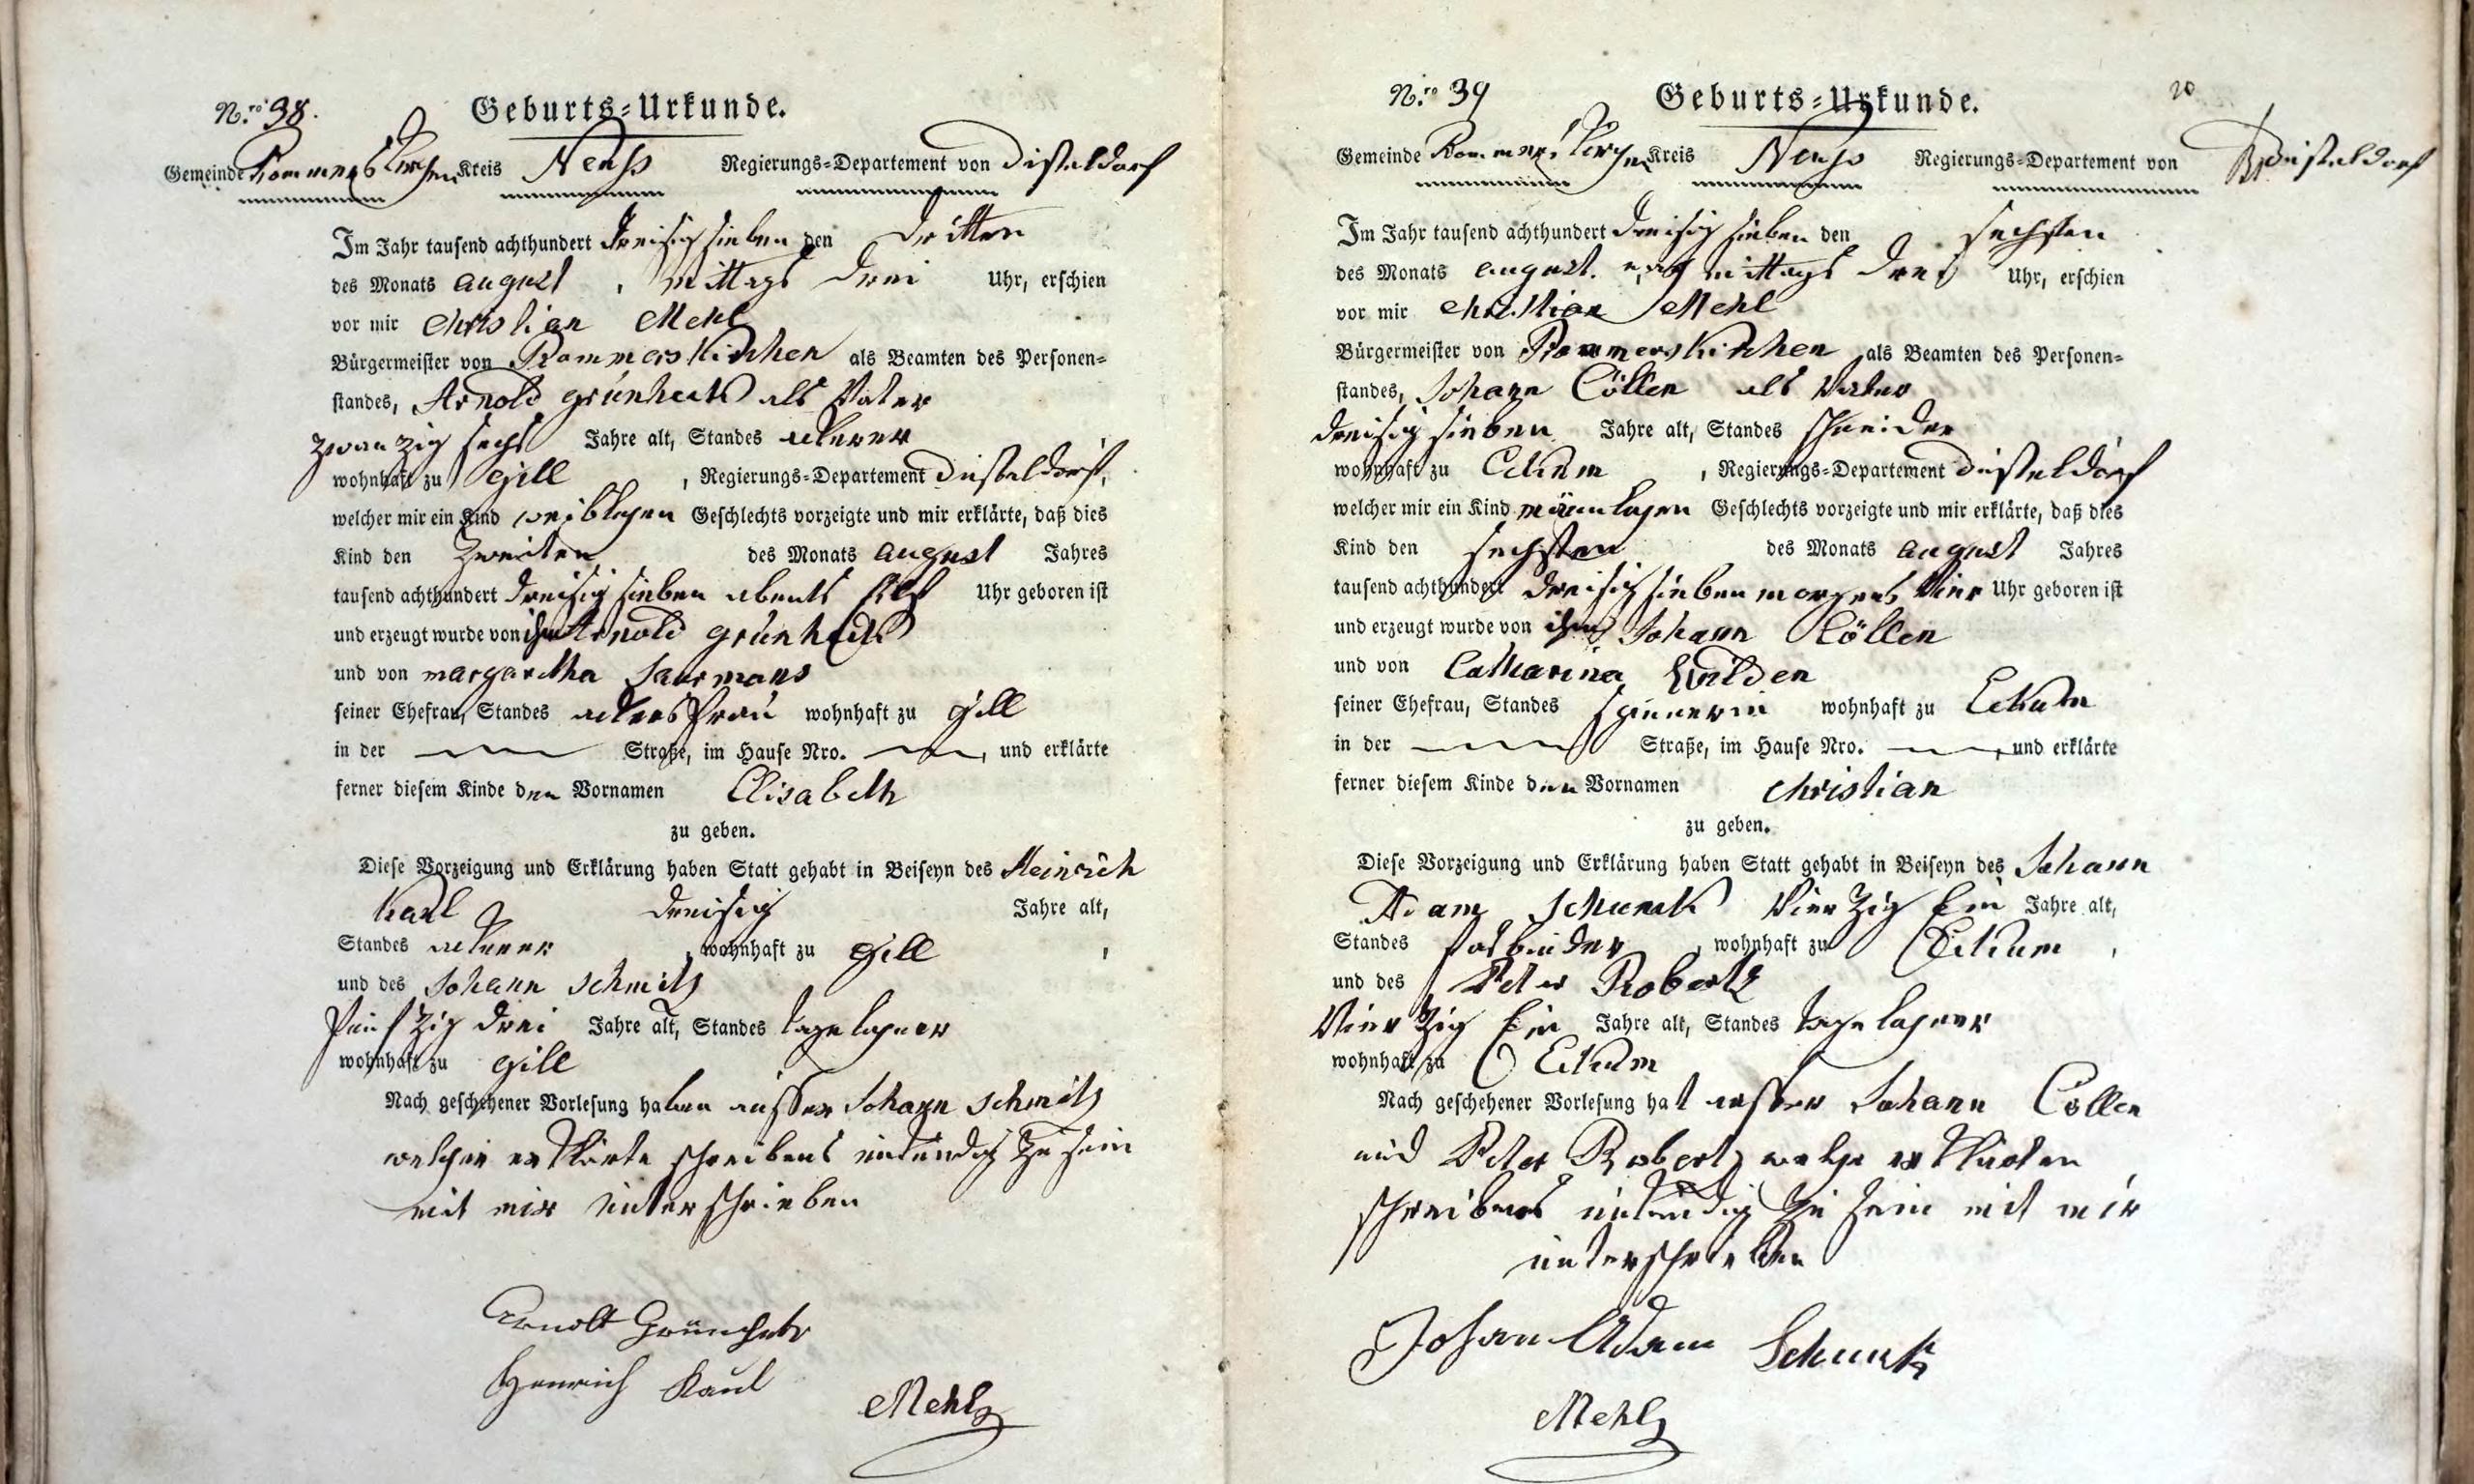 Nro 38.
Geburts-Urkunde.
Gemeinde Rommerskirchen Kreis Neuss Regierungs-Departement von Düsseldorf
Im Jahr tausend achthundert dreisig sieben den dritten
des Monats august, mittags drei Uhr, erschien
vor mir Christian Mehl
Bürgermeister von Rommerskirchen als Beamten des Personen-
standes, Arnold grünheck als Vater
zwanzig sechs Jahre alt, Standes ackerer
wohnhaft zu gill, Regierungs-Departement Düsseldorf,
welcher mir ein Kind weiblichen Geschlechts vorzeigte und mir erklärte, daß dies
Kind den zweiten des Monats august Jahres
tausend achthundert dreisig sieben abends Uhr geboren ist
und erzeugt wurde von ihm Arnold grünheck
und von margaretha Saurmans
seiner Ehefrau, Standes ackersfrau wohnhaft zu gill
in der Straße, im Hause Nro. , und erklärte
ferner diesem Kinde den Vornamen Elisabeth
zu geben.
Diese Vorzeigung und Erklärung haben Statt gehabt in Beiseyn des Heinrich
Kaul dreisig Jahre alt,
Standes ackerer, wohnhaft zu gill,
und des Johann Schmitz
fünfzig drei Jahre alt, Standes tagelohner
wohnhaft zu gill
Nach geschehener Vorlesung haben ausser Johann Schmitz
welcher erklärte schreibens unkundig zu sein
mit mir unterschrieben
Arnolt Grünheck
Henrich Kaul
Mehl
Nro 39
Geburts-Urkunde.
20
Gemeinde Rommerskirchen Kreis Neuss Regierungs-Departement von Düsseldorf
Im Jahr tausend achthundert dreisig sieben den sechsten
des Monats august. nachmittags drei Uhr, erschien
vor mir Christian Mehl
Bürgermeister von Rommerskirchen als Beamten des Personen-
standes, Johann Cöllen als Vater
dreisig sieben Jahre alt, Standes schneider
wohnhaft zu Eckum, Regierungs-Departement Düsseldorf
welcher mir ein Kind männlichen Geschlechts vorzeigte und mir erklärte, daß dies
Kind den sechsten des Monats august Jahres
tausend achthundert dreisig sieben morgens Vier Uhr geboren ist
und erzeugt wurde von ihm Johann Cöllen
und von Catharina Wilden
seiner Ehefrau, Standes spinnerin wohnhaft zu Eckum
in der Straße, im Hause Nro. , und erklärte
ferner diesem Kinde den Vornamen Christian
zu geben.
Diese Vorzeigung und Erklärung haben Statt gehabt in Beiseyn des Johann
Adam Schunck Vierzig Ein Jahre alt,
Standes fasbinder, wohnhaft zu Eckum,
und des Peter Robertz
Vierzig Ein Jahre alt, Standes tagelohner
wohnhaft zu Eckum
Nach geschehener Vorlesung hat ausser Johann Cöllen
und Peter Robertz welche erklärten
schreibens unkundig zu sein mit mir
unterschrieben
Johan Adam Schunck
Mehl